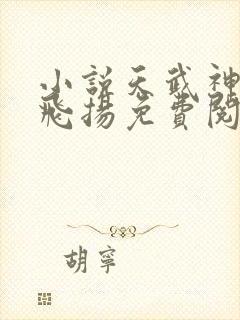 小説天武神
飛揚免費閱
胡寧